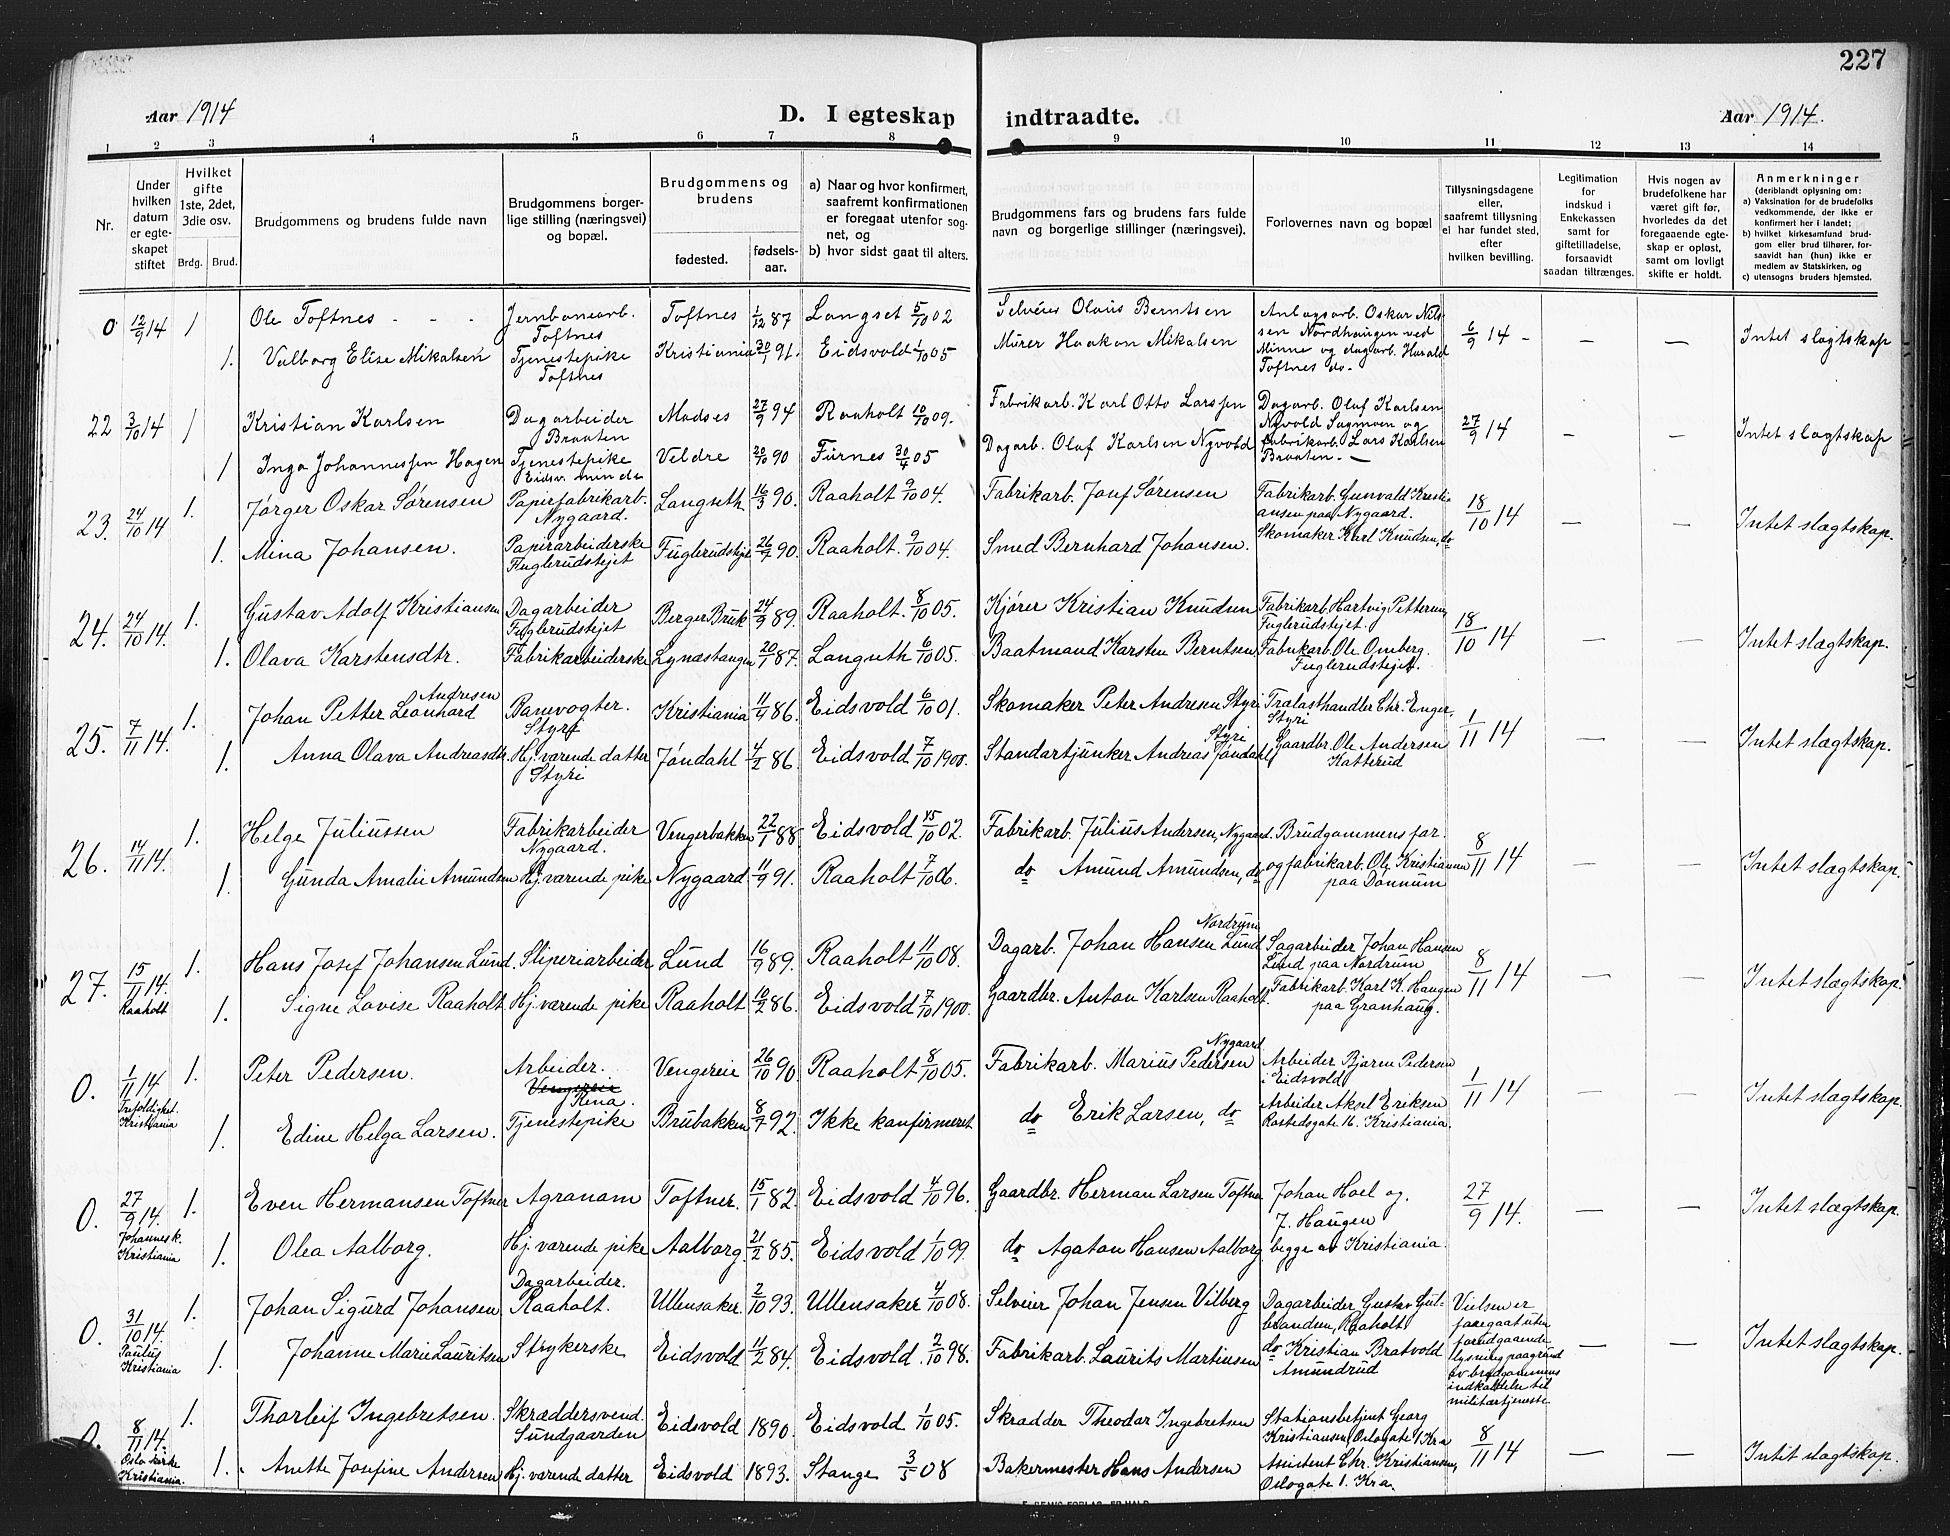 227
Aar 1914
D. I egteskap indtraadte.
Aar 1914.
1 2 3 4 5 6 7 8 9 10 11 12 13 14
Nr.
Under hvilken datum er egteskapet stiftet
Hvilket gifte 1ste, 2det, 3die osv.
Brdg. Brud.
Brudgommens og brudens fulde navn
Brudgommens borgerlige stilling (næringsvei) og bopæl.
Brudgommens og brudens
fødested.
fødselsaar.
a) Naar og hvor konfirmert, saafremt konfirmationen er foregaat utenfor sognet, og
b) hvor sidst gaat til alters.
Brudgommens fars og brudens fars fulde navn og borgerlige stillinger (næringsvei).
Forlovernes navn og bopæl
Tillysningsdagene eller, saafremt tillysning ei har fundet sted, efter hvilken bevilling.
Legitimation for indskud i Enkekassen samt for giftetilladelse, forsaavidt saadan tiltrænges.
Hvis nogen av brudefolkene har været gift før, hvorledes da det foregaaende egteskap er opløst, samt om lovligt skifte er holdt.
Anmerkninger
(deriblandt oplysning om:
a) Vaksination for de brudefolks vedkommende, der ikke er konfirmert her i landet;
b) hvilket kirkesamfund brudgom eller brud tilhører, forsaavidt han (hun) ikke er medlem av Statskirken, og
c) utensogns bruders hjemsted.
0 12/9 14 1 Ole Toftnes - - - Jernbanearb. Toftnes Toftnes 1/12 87 Langset 5/10 02 Selveier Olaus Berntsen Anlagsarb. Oskar Nilssen Nordhaugen ved Minne og dagarb. Harald Toftnes do. 6/9 14 - — — Intet slagtskap
1. Valborg Elise Mikalsen Tjenestepike Toftnes Kristiania 30/1 91. Eidsvold 1/10 05 Murer Haakon Mikalsen
22 3/10 14 1 Kristian Karlsen Dagarbeider Braaten Modses 27/9 94 Raaholt 10/10 09. Fabrikarb. Karl Otto Larssen Dagarb. Olaf Karlsen Nyvold Sagmoen og fabrikarb. Lars Karlsen Braaten. — 27/9 14 — — Intet slagtskap
1 Inga Johannessen Hagen Tjenestepike Eidsv. minde Veldre 20/10 90 Furnes 30/4 05 Dagarb. Olaf Karlsen Nyvold
23. 24/10 14 1. Jørger Oskar Sørensen Papirfabrikarb. Nygaard. Langseth 16/3 90. Raaholt 9/10 04. Fabrikarb. Josef Sørensen Fabrikarb. Gunvald Kristiansen paa Nygaard. 18/10 14 — — Intet slægtskap.
1. Mina Johansen. Papirarbeiderske Fuglerudstejet Fuglerudstejet 26/7 90. Raaholt 9/10 04. Smed Bernhard Johansen. Skomaker Karl Knudsen, do
24. 24/10 14. 1. Gustav Adolf Kristiansen Dagarbeider Fuglerudstejet Berger Bruk 24/9 89. Raaholt. 8/10 05. Kjører Kristian Knudsen Fabrikarb. Hartvig Pettersen, Fuglerudstejet. 18/10 14 — — Intet slægtskap.
1. Olava Karstensdtr. Fabrikarbeiderske Lynæstangen 20/1 87. Langseth 6/10 05. Baatmand Karsten Berntsen Fabrikarb. Ole Omberg. Fuglerudstejet.
25. 7/11 14. 1. Johan Petter Leonhard Andresen Banevogter. Styri Kristiania 11/9 86. Eidsvold 6/10 01. Skomaker Peter Andresen Styri Trælasthandler Chr. Enger, Styri 1/11 14 — — Intet slægtskap.
1. Anna Olava Andreasdtr. Hj. værende datter Styri Jøndahl 4/2 86. Eidsvold 7/10 1900. Standartjunker Andreas Jøndahl Styri Gaardbr. Ole Andersen Katterud
26. 14/11 14. 1. Helge Juliussen Fabrikarbeider Nygaard. Vengerbakken 22/1 88 Eidsvold 15/10 02. Fabrikarb. Julius Andersen, Nygaard. Brudgommens far. 8/11 14 — — Intet slægtskap.
1. Gunda Amalie Amundsen Hj. værende pike Nygaard. 11/9 91. Raaholt 7/10 06. do Amund Amundsen, do og fabrikarb. Ole Kristiansen paa Dønnum
27. 15/11 14. Raaholt 1. Hans Josef Johansen Lund. Sliperiarbeider Lund 16/9 89. Raaholt 11/10 08. Dagarb. Johan Hansen Lund Nordrum Sagarbeider Johan Hansen Lund paa Nordrum 8/11 14 — — Intet slægtskap.
1. Signe Lovise Raaholt Hj. værende pike Raaholt 6/2 86. Eidsvold 7/10 1900. Gaardbr. Anton Karlsen Raaholt. Fabrikarb. Karl K. Haugen paa Granhaug.
0. 1/11 14 Trefoldighet. Kristiania 1. Peter Pedersen. Arbeider. Vengereie Rena. Vengereie 26/10 90 Raaholt 8/10 05. Fabrikarb. Marius Pedersen Nygaard Arbeider Bjarne Pedersen i Eidsvold 1/11 14 — — Intet slægtskap.
1. Edine Helga Larsen. Tjenestepike Brubakken 8/7 92. Ikke konfirmeret do Erik Larsen, do Arbeider Aksel Eriksen Rostedsgate 16. Kristiania.
0. 27/9 14. Johannesk. Kristiania 1. Even Hermansen Toftner Agranam Toftner. 15/1 82. Eidsvold 4/10 96. Gaardbr. Herman Larsen Toftner Johan Hoel og 27/9 14. — — Intet slægtskap.
1. Olea Aalborg. Hj. værende pike Aalborg. 21/2 85. Eidsvold 1/10 99. do Agaton Hansen Aalborg J. Haugen begge av Kristiania.
0. 31/10 14. Paulus Kristiania 1. Johan Sigurd Johansen Dagarbeider. Raaholt. Ullensaker. 2/10 93. Ullensaker 4/10 08. Selveier Johan Jensen Vilberg Dagarbeider Gustav Gulbrandsen, Raaholt Vielsen er foregaat uten forudgaaende lysning paa grund av brudgommens indkaldelse til militærtjeneste. — — Intet slægtskap.
1. Johanne Marie Lauritsen Strykerske Eidsvold 11/2 84. Eidsvold. 2/10 98. Fabrikarb. Laurits Martinsen do Kristian Bratvold Amundrud
0. 8/11 14. Oslo kirke Kristiania. 1. Thorleif Ingebretsen. Skræddersvend. Sundgaarden Eidsvold 1890. Eidsvold 1/10 05. Skrædder Theodor Ingebretsen Stationsbetjent Georg Kristiansen, Oslogate 1 Kra 8/11 14 — — Intet slægtskap.
1. Anette Josefine Andersen Hj. værende datter Eidsvold 1893. Stange 3/5 08 Bakermester Hans Andersen Assistent Chr. Kristiansen, Oslogate 1. Kra.